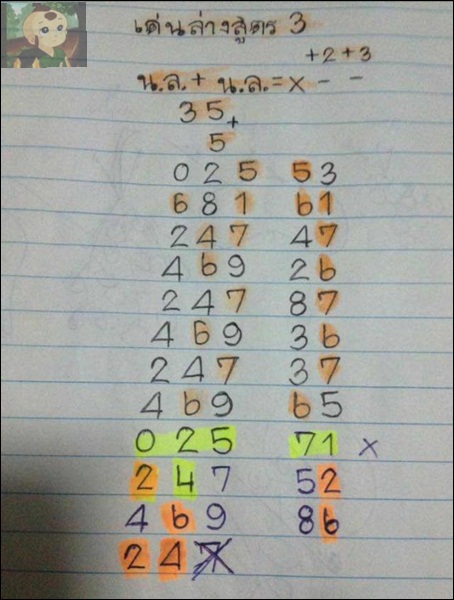 เด่นล่างสูตร 3
+2 +3
น.ล. + น.ล. = x - -
3 5 +
5
0 2 5 5 3
6 8 1 6 1
2 4 7 4 7
4 6 9 2 6
2 4 7 8 7
4 6 9 3 6
2 4 7 3 7
4 6 9 6 5
0 2 5 7 1 x
2 4 7 5 2
4 6 9 8 6
2 4 7